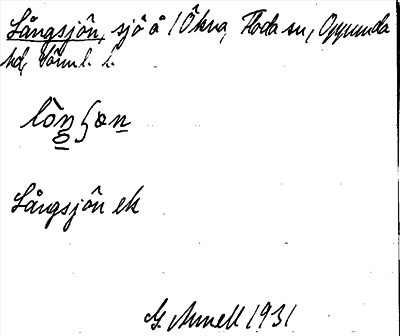 Långsjön, sjö å 1 Ökna, Floda sn, Oppunda
hd, Sörml. l.
Långsjön ek
G. Annell 1931